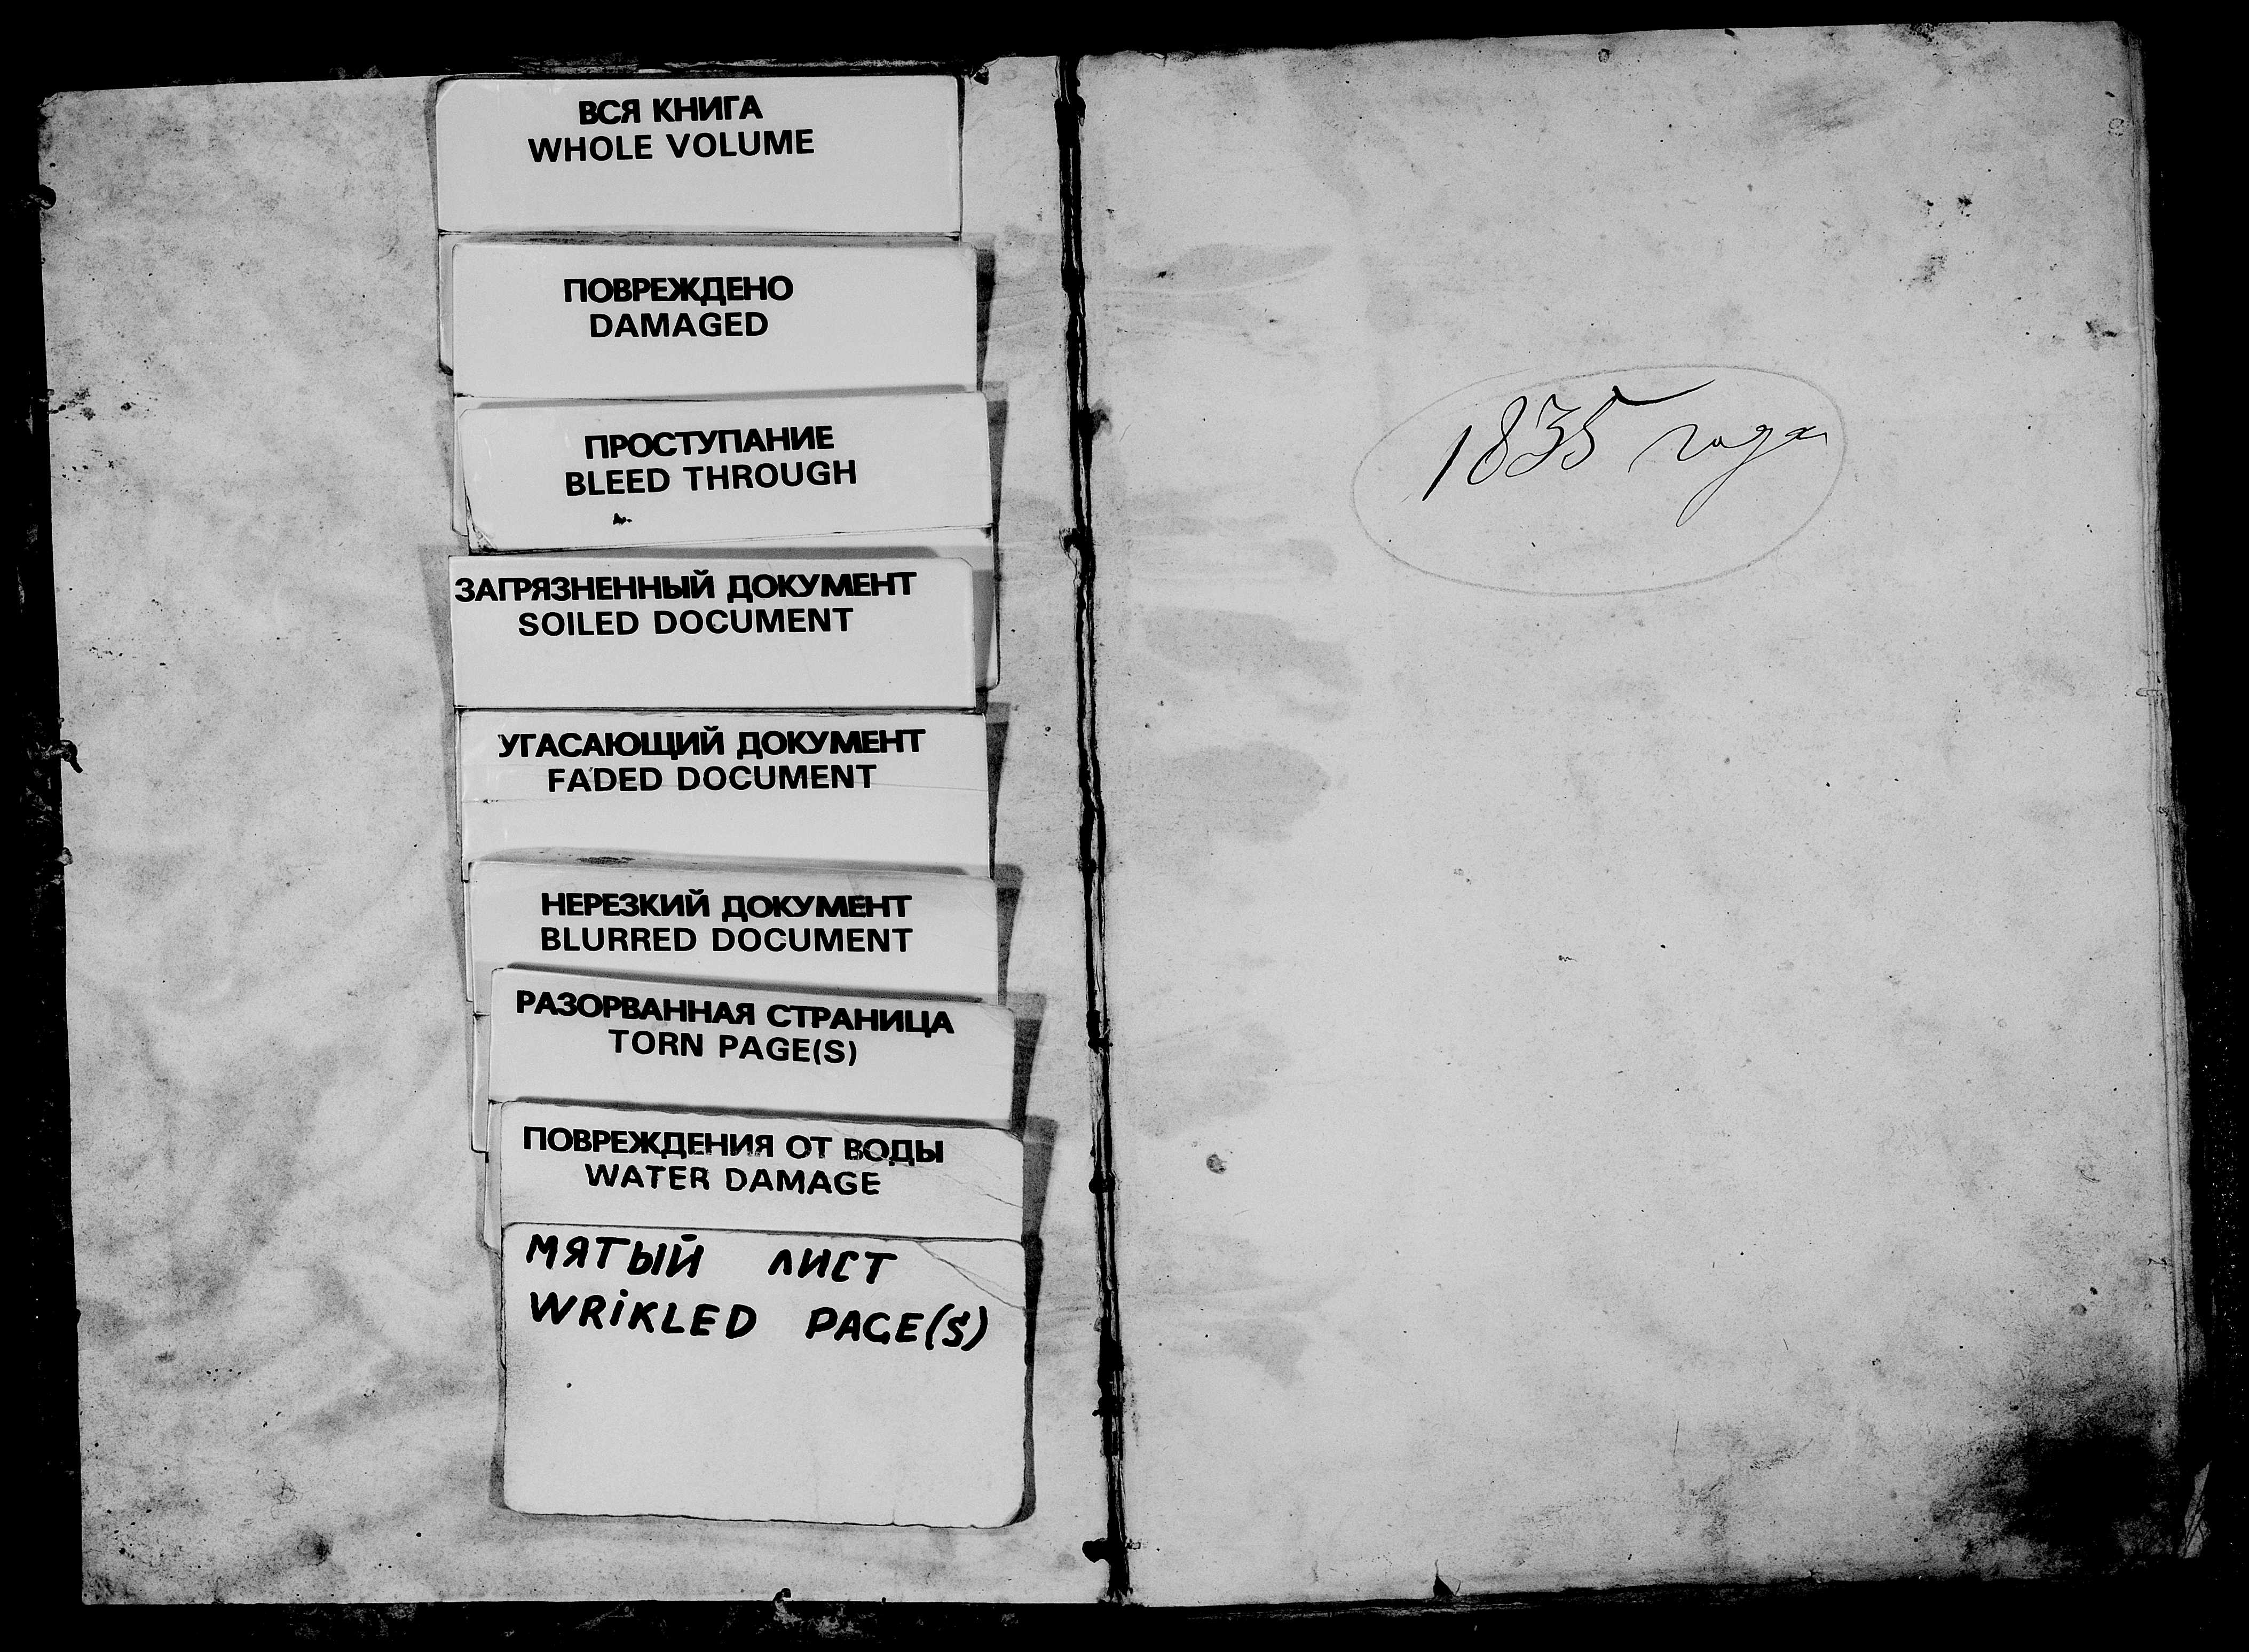 ВСЯ КНИГА
WHOLE VOLUME
ПОВРЕЖДЕНО
DAMAGED
ПРОСТУПАНИЕ
BLEED THROUGH
ЗАГРЯЗНЕННЫЙ ДОКУМЕНТ
SOILED DOCUMENT
УГАСАЮЩИЙ ДОКУМЕНТ
FADED DOCUMENT
НЕРЕЗКИЙ ДОКУМЕНТ
BLURRED DOCUMENT
РАЗОРВАННАЯ СТРАНИЦА
TORN PAGE(S)
ПОВРЕЖДЕНИЯ ОТ ВОДЫ
WATER DAMAGE
МЯТЫЙ ЛИСТ
WRIKLED PAGE(S)
1835 года